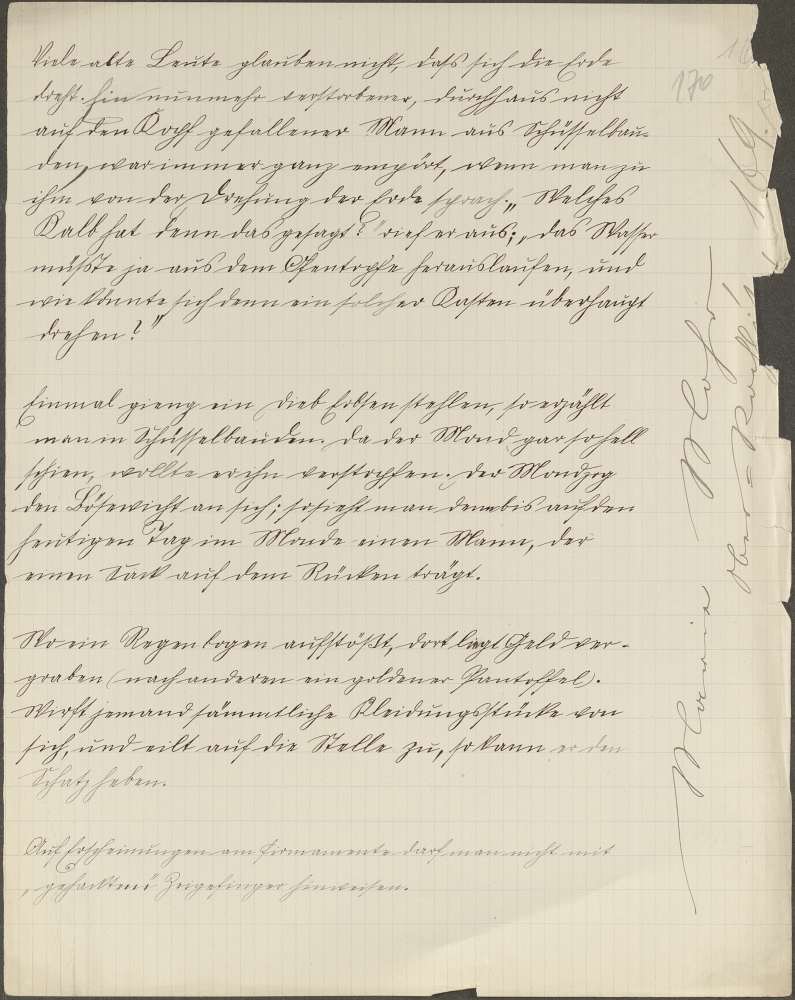 Viele alte Leute glauben nicht, dass sich die Erde
dreht. Ein nunmehr verstorbener, durchhaus nicht
auf den Kopf gefallener Mann aus Schüsselbau-
den, war immer ganz empört, wenn man zu
ihm von der Drehung der Erde sprach. „Welches
Kalb hat denn das gesagt?" rief er aus; „das Wasser
müsste ja aus dem Ofentopfe herauslaufen, und
wie könnte sich denn ein solcher Kasten überhaupt
drehen?"
Einmal gieng ein Dieb Erbsen stehlen, so erzählt
man in Schüsselbauden. Da der Mond gar so hell
schien, wollte er ihn verstopfen. Der Mond zog
den Bösewicht an sich; so sieht man denn bis auf den
heutigen Tag im Monde einen Mann, der
einen Sack auf dem Rücken trägt.
Wo ein Regenbogen aufstößt, dort liegt Geld ver-
graben (nach anderen ein goldener Pantoffel).
Wirft jemand sämmtliche Kleidungsstücke von
sich, und eilt auf die Stelle zu, so kann er den
Schatz heben.
Auf Erscheinungen am Firmamente darf man nicht mit
„gehacktem" Zeigefinger hinweisen.
170
169.
Maria Mohr
Ober-